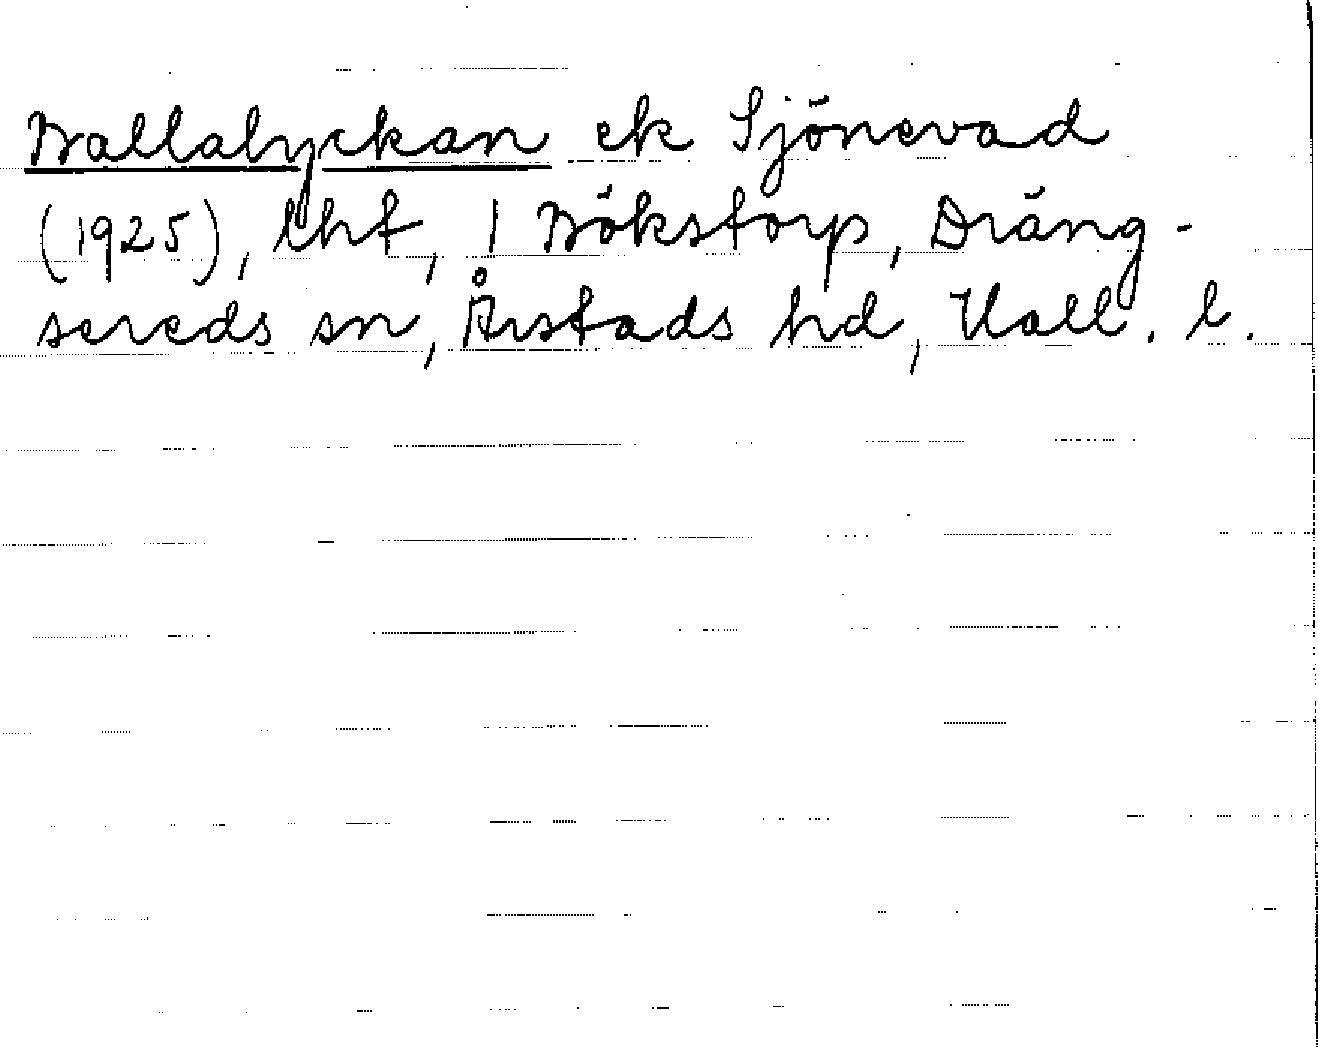 Ballalyckan ek Sjönevad
(1925), lht, 1 Bökstorp, Dräng-
sereds sn, Årstads hd, Hall. l.